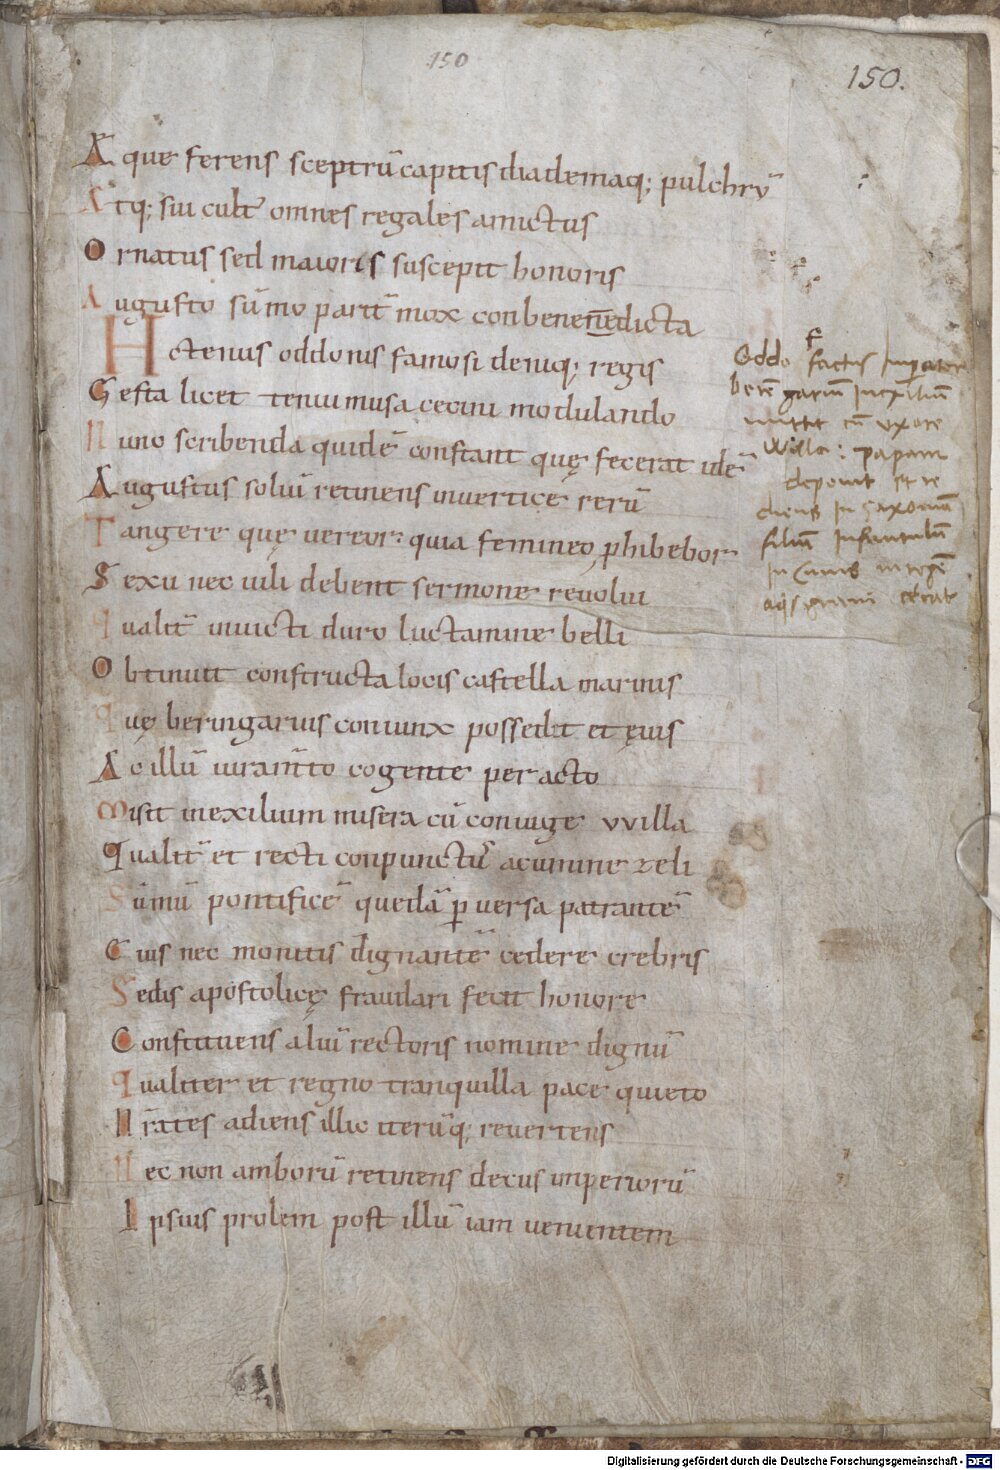 150
150.
Aque ferens sceptrū capitis diademaq; pulchrū
Atq; sui cult᷑ omnes regales amictus
Ornatus sed maioris suscepit honoris
Augusto sūmo parit᷑ mox conbenenedicta
Hctenus oddonis famosi deniq; regis
Gesta licet tenui musa cecini modulando
Nunc scribenda quidē constant quę fecerat idē
Augustus soliū retinens in vertice rerū
Tangere quę vereor: quia femineo ꝓhibebor
Sexu nec uili debent sermone reuolui
Qualit᷑ inuicti duro luctamine belli
Obtinuit constructa locis castella marinis
Quę beringarius coniunx possedit et ęius
Ac illū iuram̅to cogente peracto
Misit in exilium misera cū coniuge vvilla
Qualit᷑ et recti conpunctus acumine zeli
Sūmū pontificē quedā ꝑversa patrantē
Eius nec monitis dignantē cedere crebris
Sedis apostolicę fraudari fecit honore
Constituens aliū rectoris nomine dignū
Qualiter et regno tranquilla pace quieto
Nr̄ates adiens illic iterūq; revertens
Nec non amborū retinens decus imperiorū
Ipsius prolem post illū iam uenientem
Oddo factus impator
berēgariū in exiliū
mittit cū vxore
Willa: papam
deponit et re
diens in Saxoniā
filiū Infantulū
In Cunis in regē